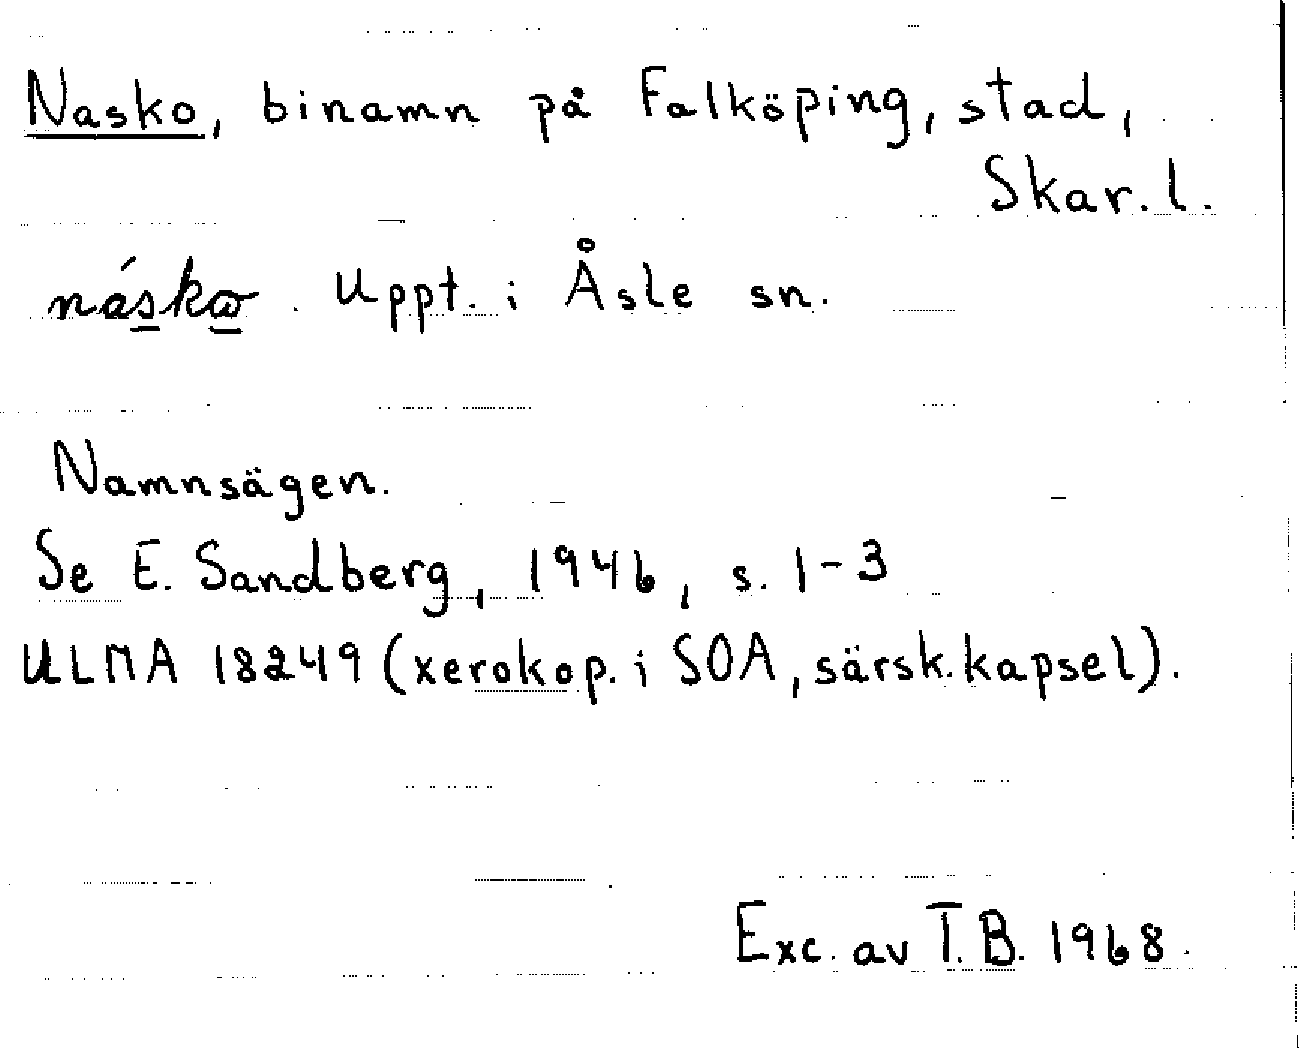 Nasko, binamn på Falköping, stad,
Skar. l.
náskω. Uppt. i Åsle sn.
Namnsägen.
Se E. Sandberg, 1946, s. 1-3
ULMA 18249 (xerokop. i SOA, särsk. kapsel).
Exc. av T.B. 1968.